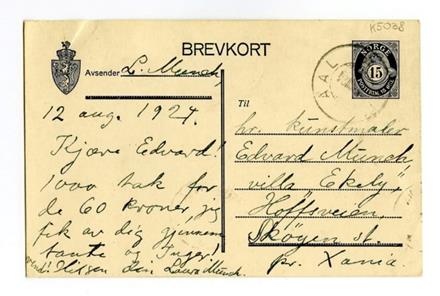 K5038
BREVKORT
Avsender L. Munch,
NORGE
15
AAL
12 aug. 1927.
Kjære Edvard!
1000 tak for
de 60 kroner, jeg
fik av dig gjennem
tante og Inger!
Hilsen din Laura Munch.
Til
hr. kunstmaler
Edvard Munch,
villa "Ekely",
Hoffsveien,
Skøyen st.
pr. Xania.